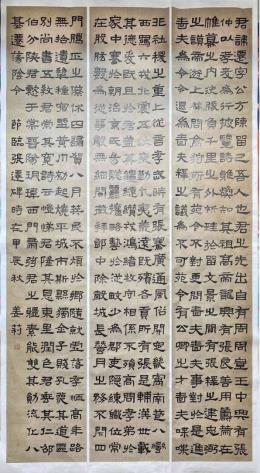 君諱遷字公方陳留己吾人也君之先出自有周周宣王中興有張
仲以孝友為行披覽詩雅煥知其祖高帝龍興有張良善用籌策在
帷幕之內決勝負千里之外析珪於留文景之間有張釋之建忠弼
之謨帝遊上林問禽狩所有苑令不對更問嗇夫嗇夫事對於是進
嗇夫為令令退為嗇夫釋之議為不可苑令有公卿之才嗇夫喋喋
非社稷之重上從言孝武時有張騫廣通風俗開定畿寓南苞八蠻
西羈六戎北震五狄東勤九夷荒遠既殯各貢所有張是輔漢世載
其德爰既且於君蓋其纏縺纘戎鴻緒牧守相系不殞高問孝弟於
家中謇於朝治京氏易聰麗權略藝於從畋少為郡吏隱練職位常
在股肱數為從事聲無細聞徵拜郎中除穀城長蠶月之務不閉四
門臘正之僚休囚歸賀八月筭民不煩於鄉隨就虛落存恤高年路
無拾遺犁種宿野黃巾初起燒平城市斯縣獨全子賤孔蔑其道區
別尚書五教君崇其寬詩云愷悌君隆其恩東里潤色君垂其仁邵
伯分陝君懿于棠晉陽珮瑋西門帶弦君之體素能雙其勛流化八
基遷蕩陰令 節臨張遷碑 時在甲辰秋 姜莉